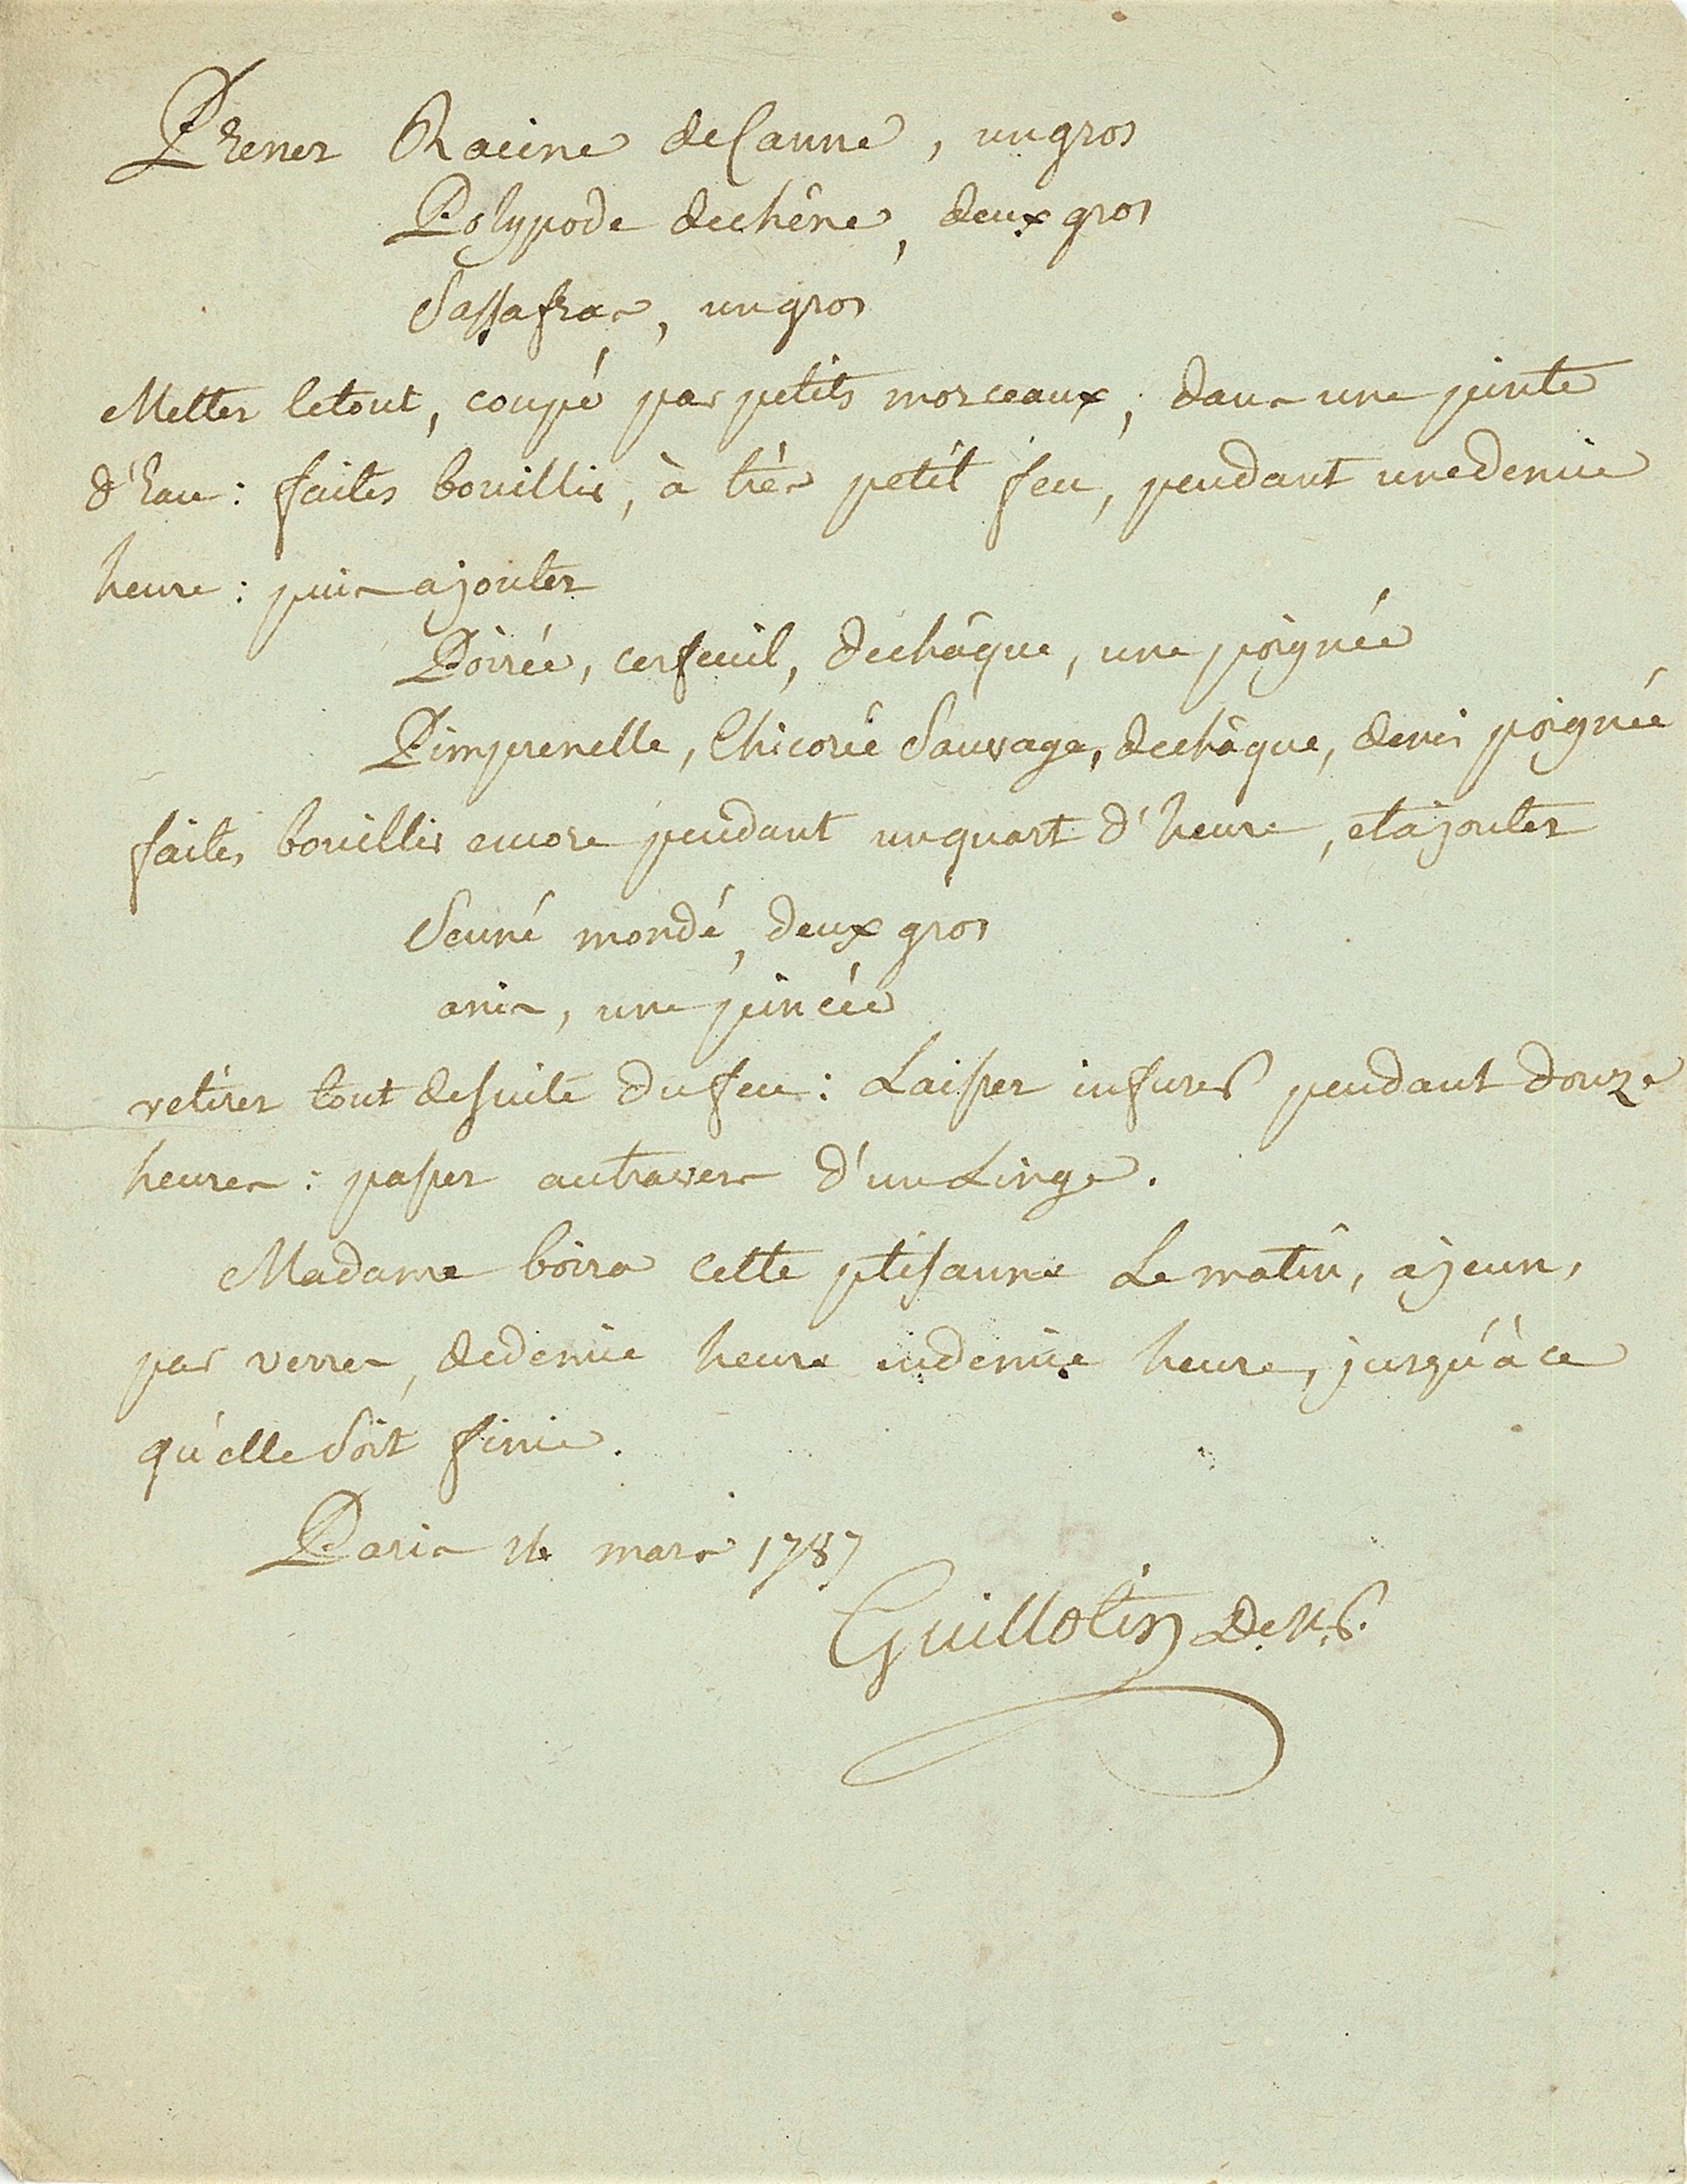 Prenez Racine de Canne, un gros
Polypode de chêne, deux gros
Sassafras, un gros
Mettez le tout, coupé par petits morceaux, dans une pinte
d'Eau : faites bouillir, à très petit feu, pendant une demie
heure : puis ajoutez
Poirée, cerfeuil, de châque, une poignée
Pimprenelle, Chicorée Sauvage, de châque, demi poignée
faites bouillir encore pendant un quart d'heure, et ajoutez
Senné mondé, deux gros
anis, une pincée
retirez tout de suite du feu : Laissez infuser pendant douze
heures : passez au travers d'un Linge.
Madame boira cette ptisanne Le matin, à jeun,
par verres, de demie heure en demie heure, jusqu'à ce
qu'elle Soit finie.
Paris mars 1787
Guillotin